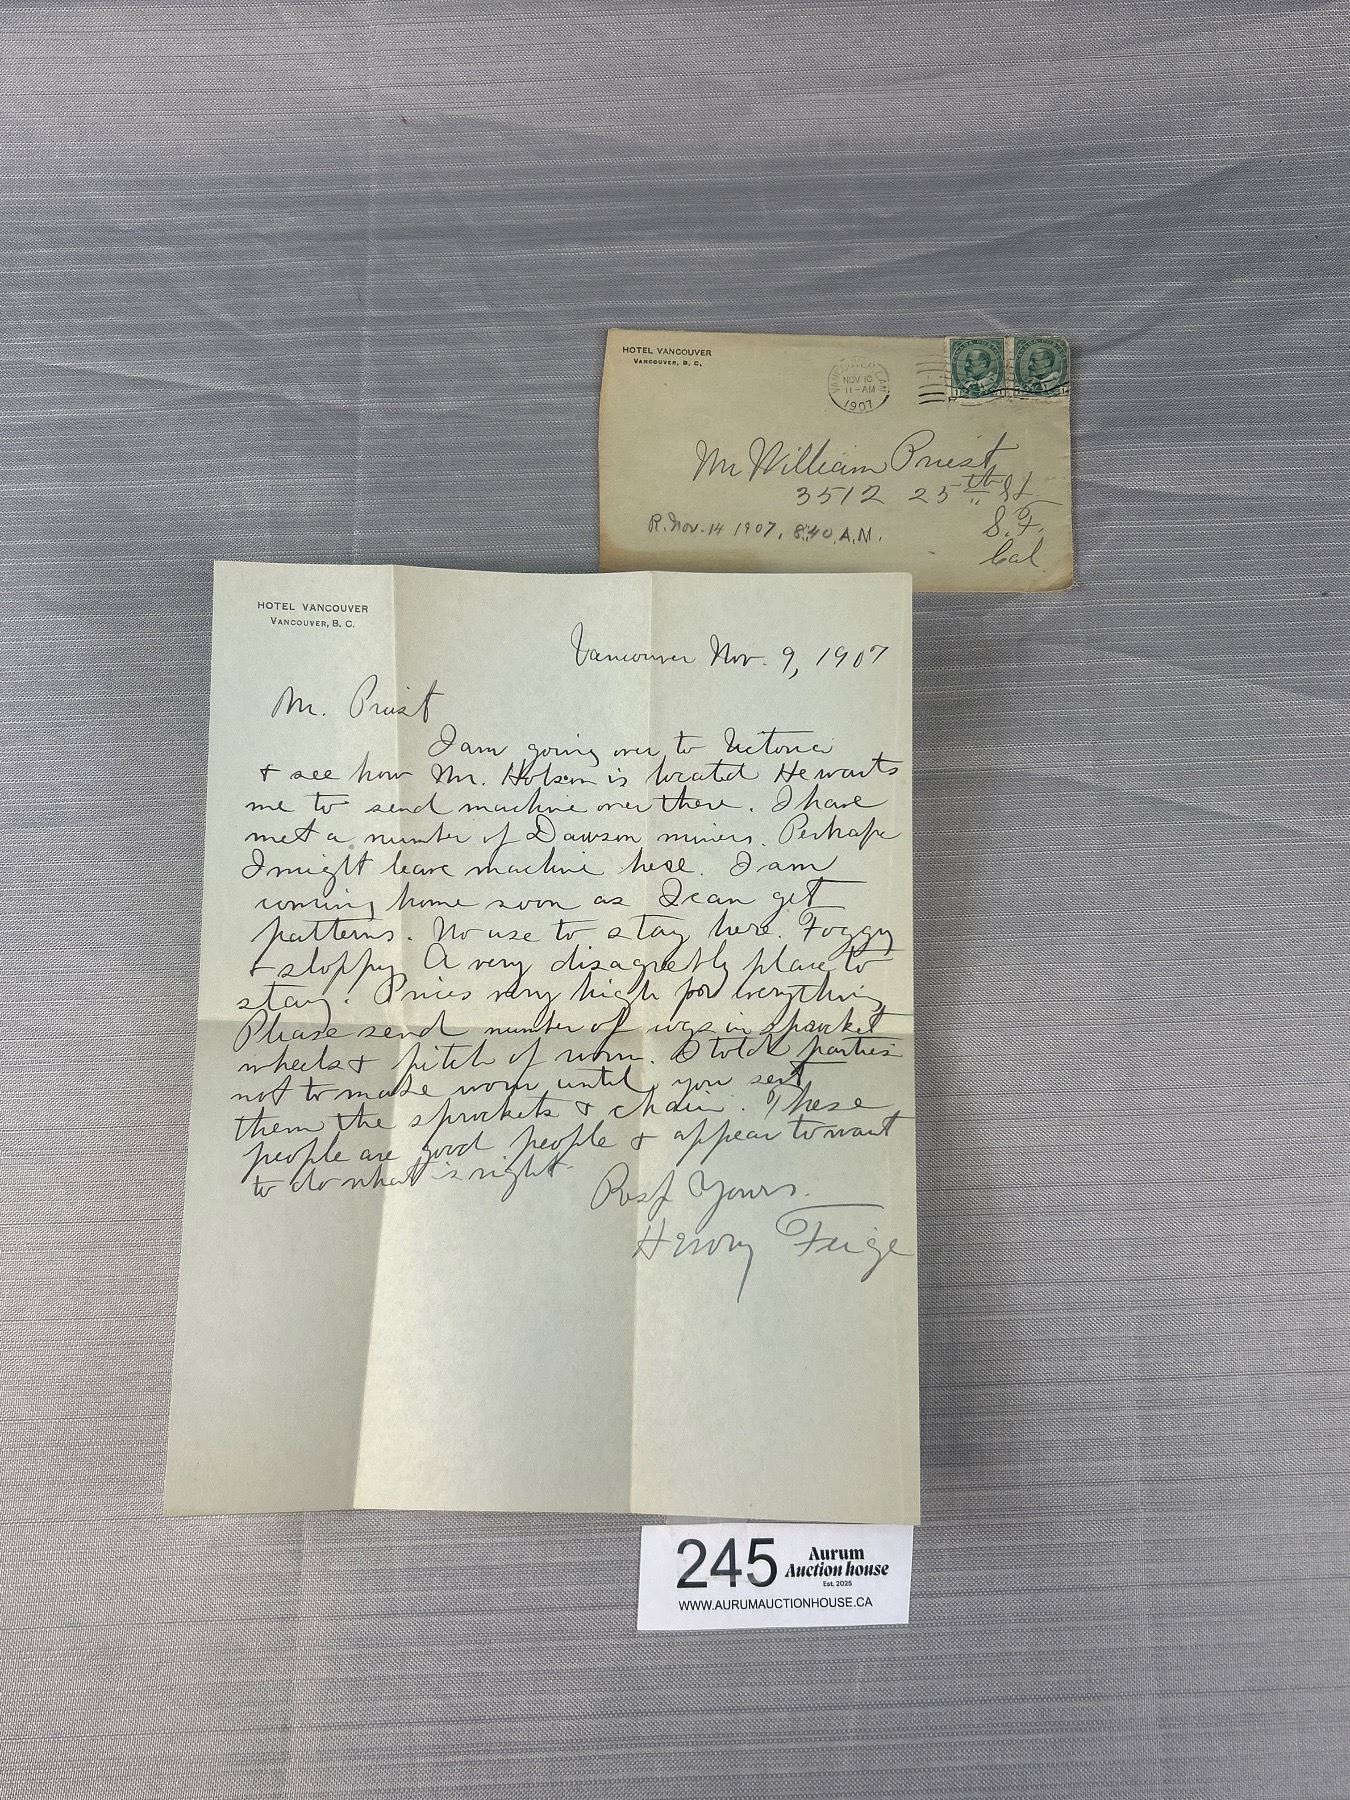 HOTEL VANCOUVER
VANCOUVER, B. C.
VANCOUVER CAN
NOV 10
11-AM
1907
Mr William Priest
3512 25th St.
S. F.
Cal.
R. Nov. 14 1907, 8:40 A.M.
HOTEL VANCOUVER
VANCOUVER, B. C.
Vancouver Nov. 9, 1907
Mr. Priest
I am going over to Victoria
& see how Mr. is located He wants
me to send machine over there. I have
met a number of Dawson miners. Perhaps
I might leave machine here. I am
coming home soon as I can get
patterns. No use to stay here. Foggy
& sloppy A very disagreebly place to
stay. Prices very high for everything
Please send number of cogs in sprocket
wheels & pitch of worm. I told parties
not to make worm until you sent
them the sprockets & chain. These
people are good people & appear to want
to do what is right.
Resp Yours.
Henry Feige
245
Aurum
Auction house
Est. 2025
WWW.AURUMAUCTIONHOUSE.CA